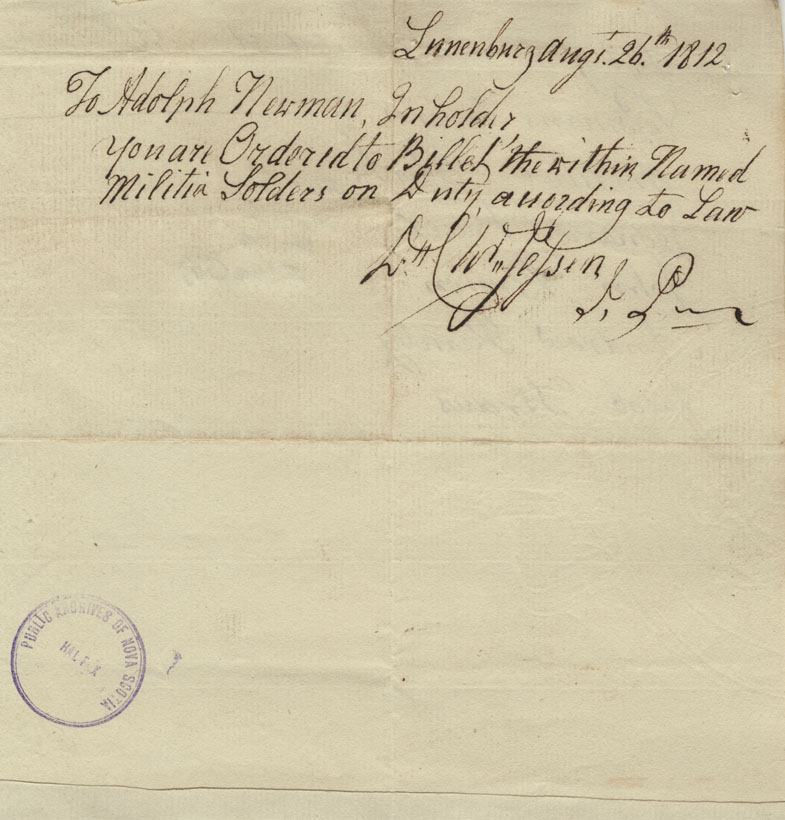 Lunenburg Augt. 26.th 1812
To Adolph Newman, Inholder
You are Ordered to Billet, the within Named
Militia Solders on Duty, according to Law
D. C. Wm. Jessen
J. P
PUBLIC ARCHIVES OF NOVA SCOTIA
HALIFAX